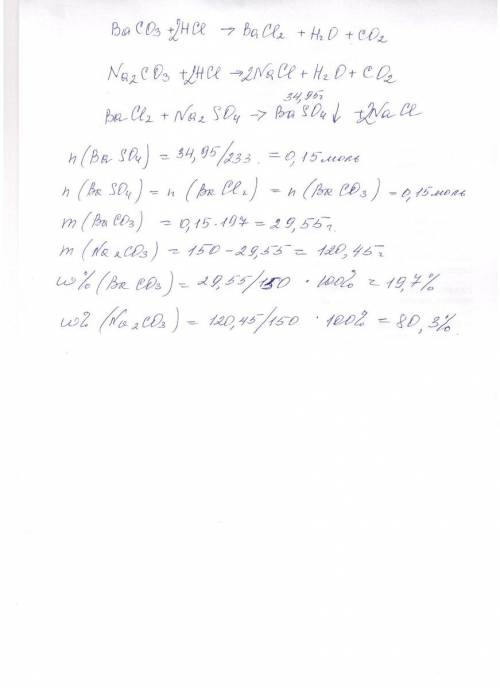 BaCO3 + 2HCl → BaCl2 + H2O + CO2
Na2CO3 + 2HCl → 2NaCl + H2O + CO2
34,95г
BaCl2 + Na2SO4 → BaSO4↓ + 2NaCl
n(BaSO4) = 34,95/233 = 0,15моль
n(BaSO4) = n(BaCl2) = n(BaCO3) = 0,15моль
m(BaCO3) = 0,15·197 = 29,55г.
m(Na2CO3) = 150-29,55 = 120,45г
w%(BaCO3) = 29,55/150 · 100% = 19,7%
w%(Na2CO3) = 120,45/150 · 100% = 80,3%.